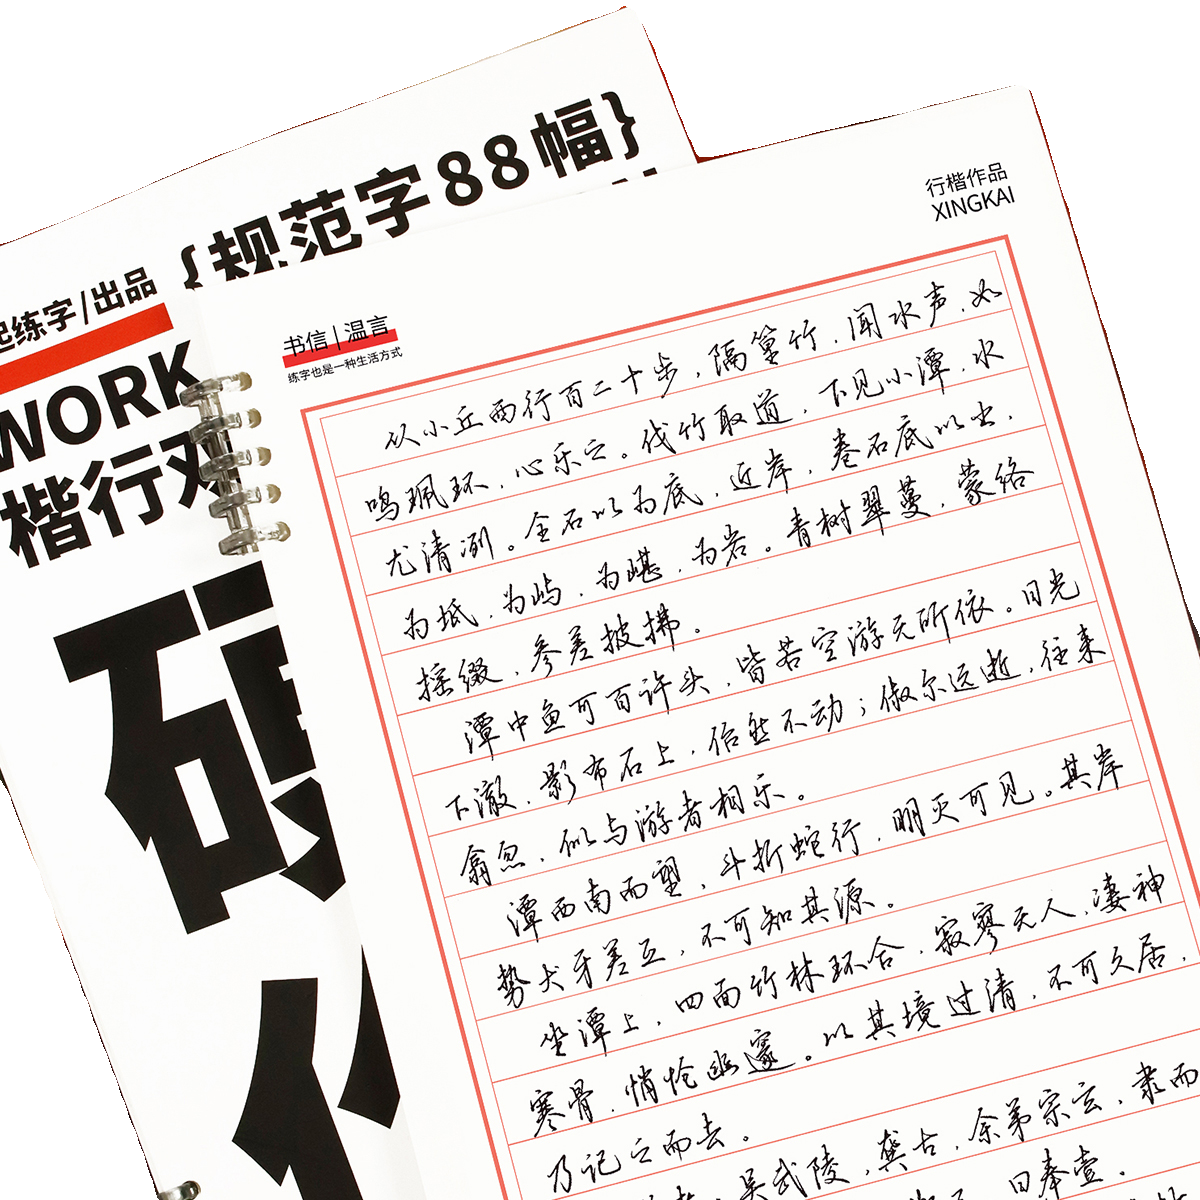 {规范字88幅}
起练字/出品
WORK
楷行对
硬
行楷作品
XINGKAI
书信|温言
练字也是一种生活方式
从小丘西行百二十步，隔篁竹，闻水声，如
鸣珮环，心乐之。伐竹取道，下见小潭，水
尤清冽。全石以为底，近岸，卷石底以出，
为坻，为屿，为嵁，为岩。青树翠蔓，蒙络
摇缀，参差披拂。
潭中鱼可百许头，皆若空游无所依。日光
下澈，影布石上，佁然不动；俶尔远逝，往来
翕忽，似与游者相乐。
潭西南而望，斗折蛇行，明灭可见。其岸
势犬牙差互，不可知其源。
坐潭上，四面竹林环合，寂寥无人，凄神
寒骨，悄怆幽邃。以其境过清，不可久居，
乃记之而去。
吴武陵，龚古，余弟宗玄，隶而
曰奉壹。